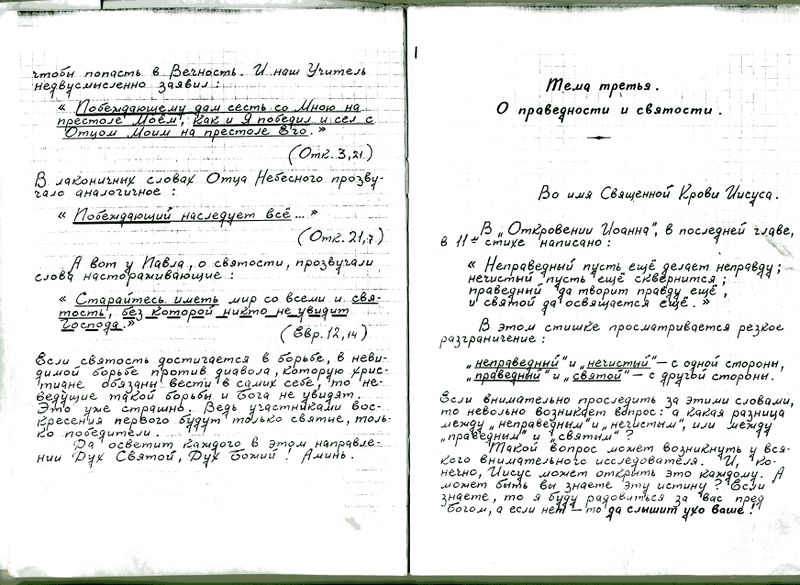 чтобы попасть в Вечность. И наш Учитель
недвусмысленно заявил:
« Побеждающему дам сесть со Мною на
престоле Моём, как и Я победил и сел с
Отцом Моим на престоле Его. »
(Отк. 3,21.)
В лаконичных словах Отца Небесного прозву-
чало аналогичное:
« Побеждающий наследует всё... »
(Отк. 21,7.)
А вот у Павла, о святости, прозвучали
слова настораживающие:
« Старайтесь иметь мир со всеми и свя-
тость, без которой никто не увидит
Господа. »
(Евр. 12,14)
Если святость достигается в борьбе, в неви-
димой борьбе против диавола, которую хрис-
тиане обязаны вести в самих себе, то не-
ведущие такой борьбы и Бога не увидят.
Это уже страшно. Ведь участниками вос-
кресения первого будут только святые, толь-
ко победители.
Да осветит каждого в этом направле-
нии Дух Святой, Дух Божий! Аминь.
Тема третья.
О праведности и святости.
Во имя Священной Крови Иисуса.
В „Откровении Иоанна", в последней главе,
в 11м стихе написано:
« Неправедный пусть ещё делает неправду;
нечистый пусть ещё сквернится;
праведный да творит правду ещё,
и святой да освящается ещё. »
В этом стишке просматривается резкое
разграничение:
„неправедный" и „нечистый" — с одной стороны,
„праведный" и „святой" — с другой стороны.
Если внимательно проследить за этими словами,
то невольно возникает вопрос: а какая разница
между „неправедным" и „нечистым", или между
„праведным" и „святым"?
Такой вопрос может возникнуть у вся-
кого внимательного исследователя. И, ко-
нечно, Иисус может открыть это каждому. А
может быть вы знаете эту истину? Если
знаете, то я буду радоваться за вас пред
Богом, а если нет — то да слышит ухо ваше!